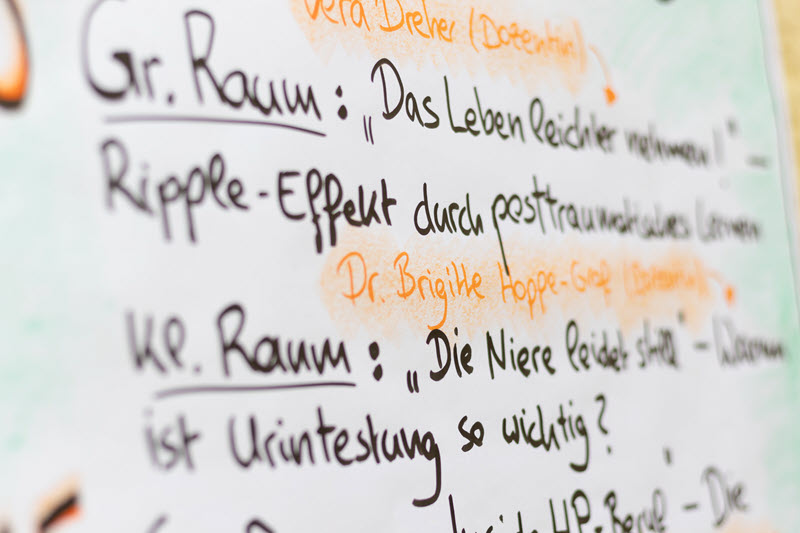 Vera Dreher (Dozentin)
Gr. Raum: „Das Leben leichter nehmen!" –
Ripple-Effekt durch posttraumatisches Lernen
Dr. Brigitte Hoppe-Graf (Dozentin)
Kl. Raum: „Die Niere leidet still" – Warum
ist Urintestung so wichtig?
HP-Beruf" – Die